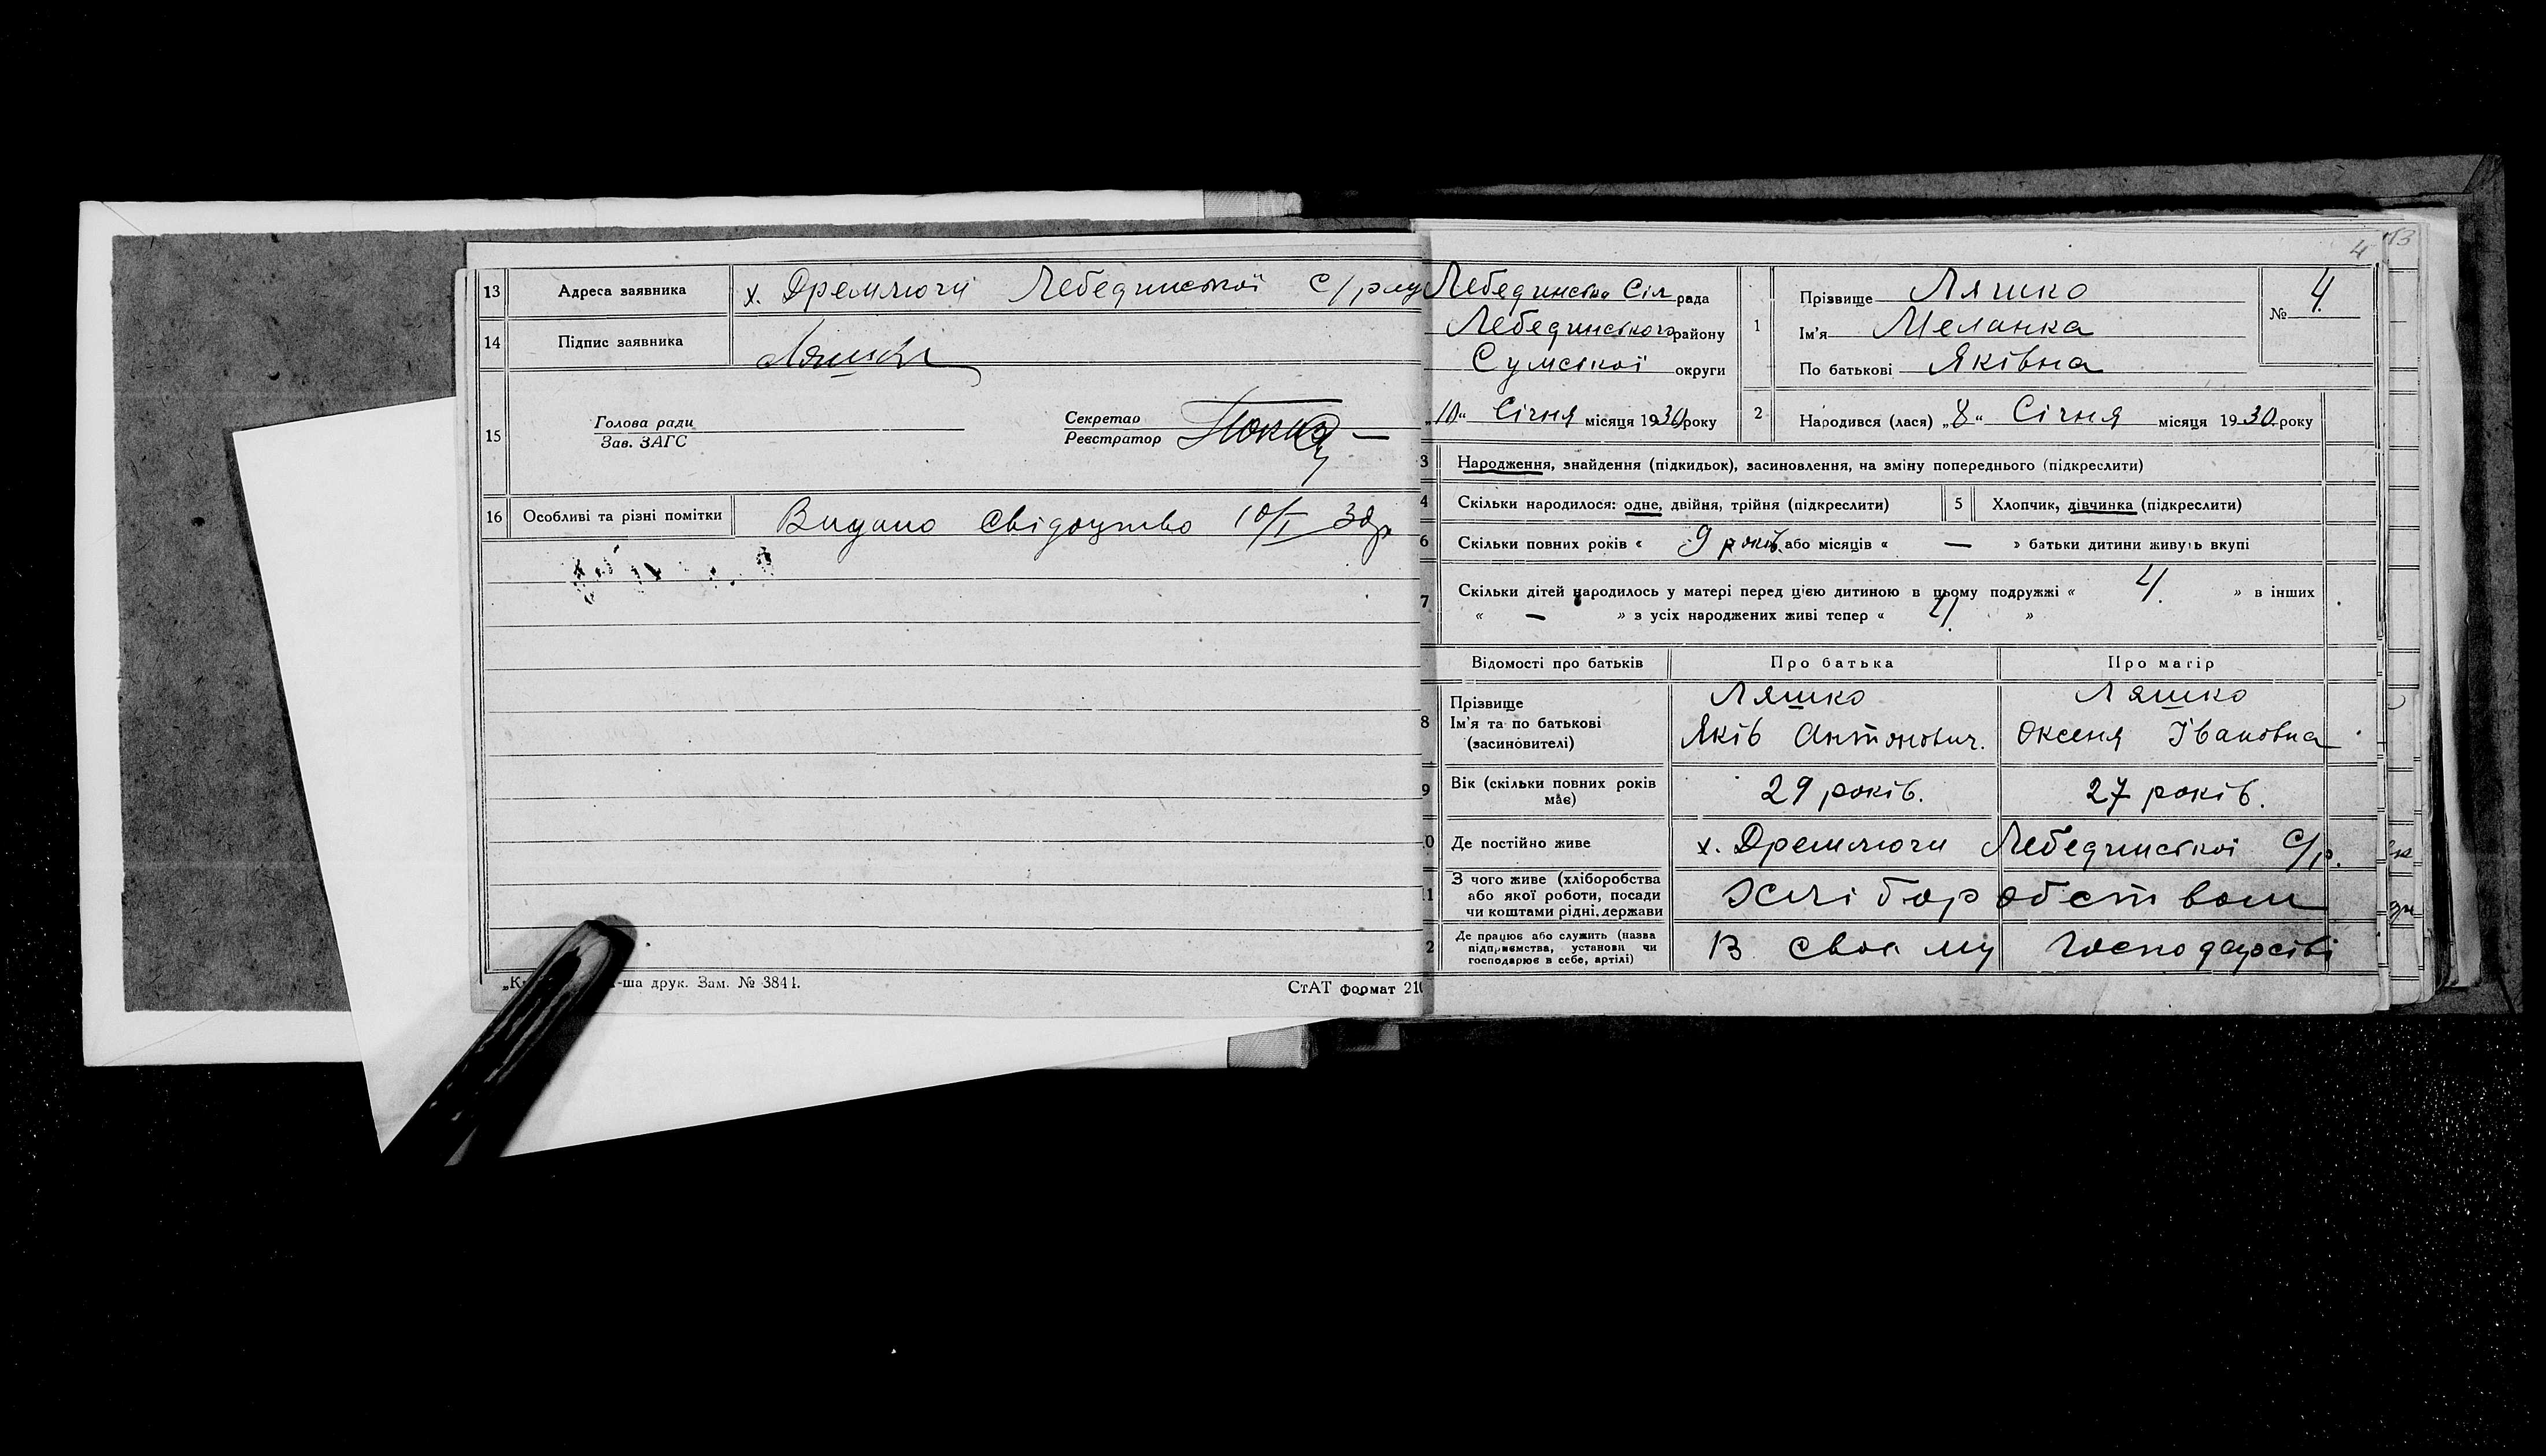 13 Адреса заявника х. Дремлюги Лебединської с/
14 Підпис заявника Ляшко
15 Голова ради
Зав. ЗАГС
Секретар
Реєстратор
16 Особливі та різні помітки Видано свідоцтво 10/I 30р
-ша друк. Зам. № 3841.
СтАТ формат 210
4
13
Лебединська Сіл рада
Лебединського району
Сумської округи
„10“ Січня місяця 1930 року
1 Прізвище Ляшко
Ім'я Меланка
По батькові Яківна
№ 4
2 Народився (лася) „8“ Січня місяця 1930 року
3 Народження, знайдення (підкидьок), засиновлення, на зміну попереднього (підкреслити)
4 Скільки народилося: одне, двійня, трійня (підкреслити)
5 Хлопчик, дівчинка (підкреслити)
6 Скільки повних років « 9 років. або місяців « — » батьки дитини живуть вкупі
7 Скільки дітей народилось у матері перед цією дитиною в цьому подружжі « 4 » в інших
« — » з усіх народжених живі тепер « 4 »
Відомості про батьків Про батька Про матір
8 Прізвище Ляшко Ляшко
Ім'я та по батькові Яків Антонович. Оксеня Івановна
(засиновителі)
9 Вік (скільки повних років має) 29 років. 27 років.
0 Де постійно живе х. Дремлюги Лебединської С/р.
1 З чого живе (хліборобства
або якої роботи, посади
чи коштами рідні, держави Хліборобством
2 Де працює або служить (назва
підприємства, установи чи
господарює в себе, артілі) В своєму господарстві